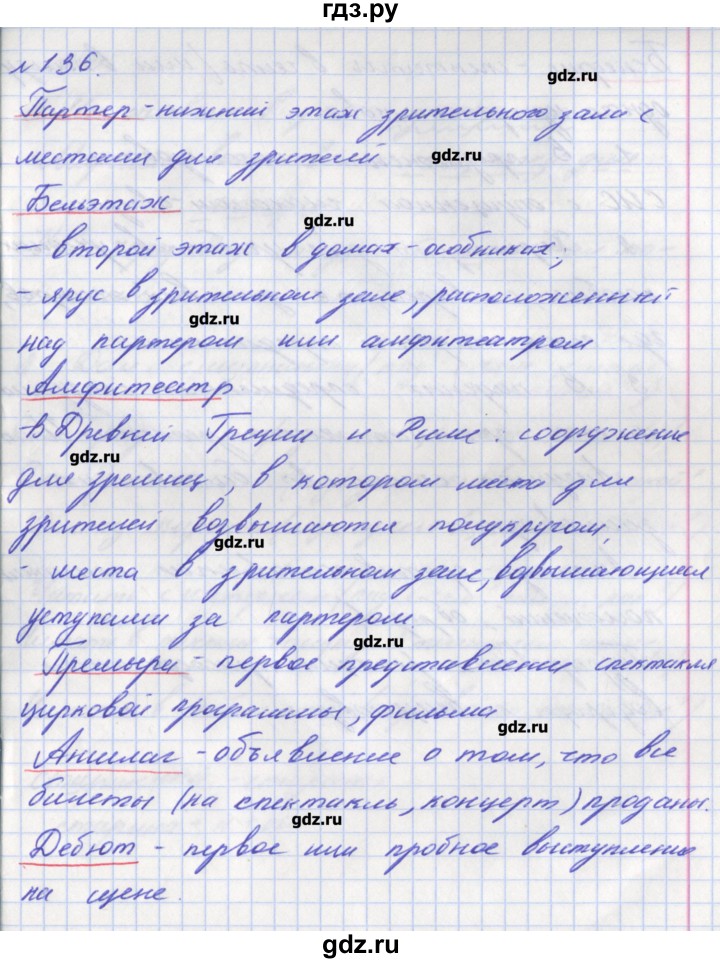 гдз.ру
№136.
gdz.ru
Партер - нижний этаж зрительного зала с
местами для зрителей
gdz.ru
Бельэтаж
gdz.ru
- второй этаж в домах-особниках;
- ярус в зрительном зале, расположенный
gdz.ru
над партером или амфитеатром
Амфитеатр
- В Древней Греции и Риме: сооружение
gdz.ru
для зрелищ, в котором места для
зрителей возвышаются полукругом;
gdz.ru
- места в зрительном зале, возвышающиеся
уступами за партером
gdz.ru
Премьера - первое представление спектакля
цирковой программы, фильма
gdz.ru
Аншлаг - объявление о том, что все
билеты (на спектакль, концерт) проданы.
gdz.ru
Дебют - первое или пробное выступление
на сцене.
gdz.ru